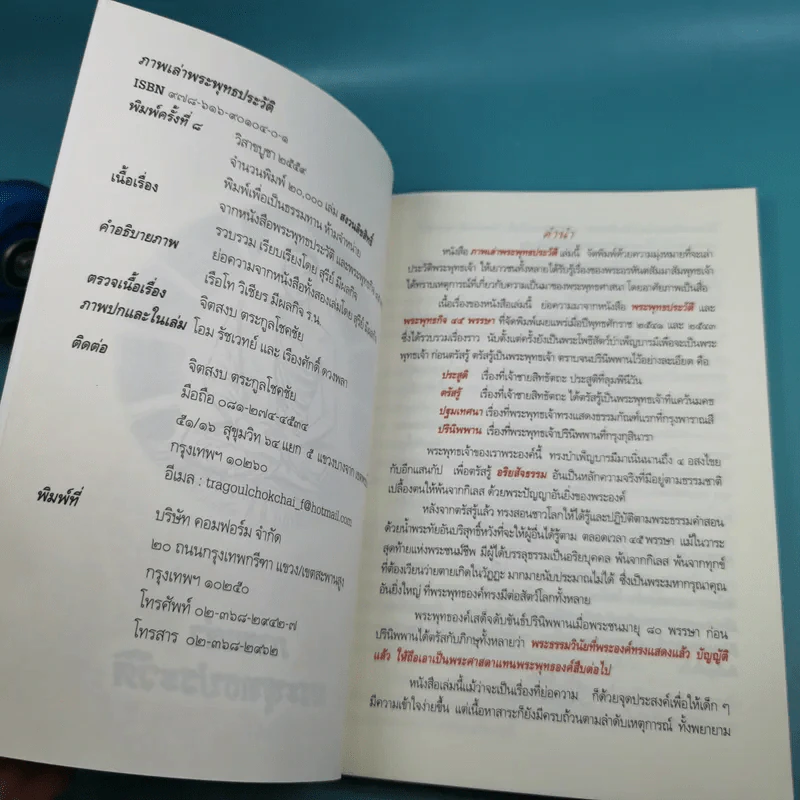 ภาพเล่าพระพุทธประวัติ
ISBN ๙๗๘-๖๑๖-๙๐๑๐๔-๐-๑
พิมพ์ครั้งที่ ๘
วิสาขบูชา ๒๕๕๙
จำนวนพิมพ์ ๒๐,๐๐๐ เล่ม สงวนลิขสิทธิ์
พิมพ์เพื่อเป็นธรรมทาน ห้ามจำหน่าย
เนื้อเรื่อง
จากหนังสือพระพุทธประวัติ และพระพุทธกิจ
รวบรวม เรียบเรียงโดย สุรีย์ มีผลกิจ
คำอธิบายภาพ
ย่อความจากหนังสือทั้งสองเล่มโดย สุรีย์
ตรวจเนื้อเรื่อง เรือโท วิเชียร มีผลกิจ ร.น.
ภาพปกและในเล่ม จิตสงบ ตระกูลโชคชัย
โอม รัชเวทย์ และ เรืองศักดิ์ ดวงพลา
ติดต่อ
จิตสงบ ตระกูลโชคชัย
มือถือ ๐๘๑-๒๗๔-๔๕๓๔
๕๑/๑๖ สุขุมวิท ๖๔ แยก ๕ แขวงบางจาก
กรุงเทพฯ ๑๐๒๖๐
อีเมล : tragoulchokchai_f@hotmail.com
พิมพ์ที่
บริษัท คอมฟอร์ม จำกัด
๒๐ ถนนกรุงเทพกรีฑา แขวง/เขตสะพานสูง
กรุงเทพฯ ๑๐๒๕๐
โทรศัพท์ ๐๒-๓๖๘-๒๙๔๒-๗
โทรสาร ๐๒-๓๖๘-๒๙๖๒
คำนำ
หนังสือ ภาพเล่าพระพุทธประวัติ เล่มนี้ จัดพิมพ์ด้วยความมุ่งหมายที่จะเล่า
ประวัติพระพุทธเจ้า ให้เยาวชนทั้งหลายได้รับรู้เรื่องของพระอรหันตสัมมาสัมพุทธเจ้า
ได้ทราบเหตุการณ์ที่เกี่ยวกับความเป็นมาของพระพุทธศาสนา โดยอาศัยภาพเป็นสื่อ
เนื้อเรื่องของหนังสือเล่มนี้ ย่อความมาจากหนังสือ พระพุทธประวัติ และ
พระพุทธกิจ ๔๕ พรรษา ที่จัดพิมพ์เผยแพร่เมื่อปีพุทธศักราช ๒๕๔๑ และ ๒๕๔๓
ซึ่งได้รวบรวมเรื่องราว นับตั้งแต่ครั้งยังเป็นพระโพธิสัตว์บำเพ็ญบารมีเพื่อจะเป็นพระ
พุทธเจ้า ก่อนตรัสรู้ ตรัสรู้เป็นพระพุทธเจ้า ตราบจนปรินิพพานไว้อย่างละเอียด คือ
ประสูติ เรื่องที่เจ้าชายสิทธัตถะ ประสูติที่ลุมพินีวัน
ตรัสรู้ เรื่องที่เจ้าชายสิทธัตถะ ได้ตรัสรู้เป็นพระพุทธเจ้าที่แคว้นมคธ
ปฐมเทศนา เรื่องที่พระพุทธเจ้าทรงแสดงธรรมกัณฑ์แรกที่กรุงพาราณสี
ปรินิพพาน เรื่องที่พระพุทธเจ้าปรินิพพานที่กรุงกุสินารา
พระพุทธเจ้าของเราพระองค์นี้ ทรงบำเพ็ญบารมีมาเนิ่นนานถึง ๔ อสงไขย
กับอีกแสนกัป เพื่อตรัสรู้ อริยสัจธรรม อันเป็นหลักความจริงที่มีอยู่ตามธรรมชาติ
เปลื้องตนให้พ้นจากกิเลส ด้วยพระปัญญาอันยิ่งของพระองค์
หลังจากตรัสรู้แล้ว ทรงสอนชาวโลกให้ได้รู้และปฏิบัติตามพระธรรมคำสอน
ด้วยน้ำพระทัยอันบริสุทธิ์หวังที่จะให้ผู้อื่นได้รู้ตาม ตลอดเวลา ๔๕ พรรษา แม้ในวาระ
สุดท้ายแห่งพระชนม์ชีพ มีผู้ได้บรรลุธรรมเป็นอริยบุคคล พ้นจากกิเลส พ้นจากทุกข์
ที่ต้องเวียนว่ายตายเกิดในวัฏฏะ มากมายนับประมาณไม่ได้ ซึ่งเป็นพระมหากรุณาคุณ
อันยิ่งใหญ่ ที่พระพุทธองค์ทรงมีต่อสัตว์โลกทั้งหลาย
พระพุทธองค์เสด็จดับขันธ์ปรินิพพานเมื่อพระชนมายุ ๘๐ พรรษา ก่อน
ปรินิพพานได้ตรัสกับภิกษุทั้งหลายว่า พระธรรมวินัยที่พระองค์ทรงแสดงแล้ว บัญญัติ
แล้ว ให้ถือเอาเป็นพระศาสดาแทนพระพุทธองค์สืบต่อไป
หนังสือเล่มนี้แม้ว่าจะเป็นเรื่องที่ย่อความ ก็ด้วยจุดประสงค์เพื่อให้เด็ก ๆ
มีความเข้าใจง่ายขึ้น แต่เนื้อหาสาระก็ยังมีครบถ้วนตามลำดับเหตุการณ์ ทั้งพยายาม